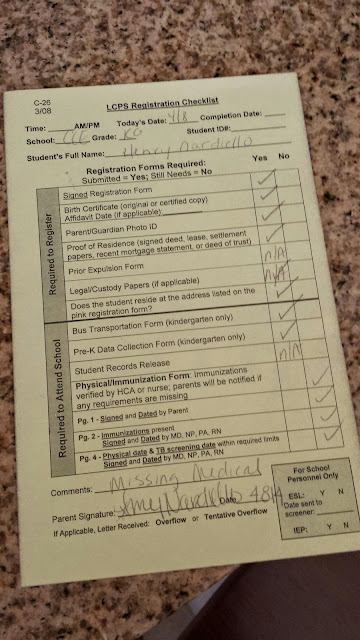 C-26
3/08
LCPS Registration Checklist
Time: AM/PM Today's Date: 4/8 Completion Date:
School: CCE Grade: KG Student ID#:
Student's Full Name: Henry Nardiello
Registration Forms Required:
Submitted = Yes; Still Needs = No
Yes No
Required to Register
Signed Registration Form
Birth Certificate (original or certified copy)
Affidavit Date (if applicable)
Parent/Guardian Photo ID
Proof of Residence (signed deed, lease, settlement
papers, recent mortgage statement, or deed of trust)
Prior Expulsion Form n/A
Legal/Custody Papers (if applicable) n/A
Does the student reside at the address listed on the
pink registration form?
Required to Attend School
Bus Transportation Form (kindergarten only)
Pre-K Data Collection Form (kindergarten only)
Student Records Release n/A
Physical/Immunization Form: immunizations
verified by HCA or nurse; parents will be notified if
any requirements are missing
Pg. 1 - Signed and Dated by Parent
Pg. 2 - Immunizations present
Signed and Dated by MD, NP, PA, RN
Pg. 4 - Physical date & TB screening date within required limits
Signed and Dated by MD, NP, PA, RN
Comments: Missing Medical
Parent Signature: Amy Nardiello Date 4.8.14
If Applicable, Letter Received: Overflow or Tentative Overflow
For School
Personnel Only
ESL: Y N
Date sent to
screener:
IEP: Y N